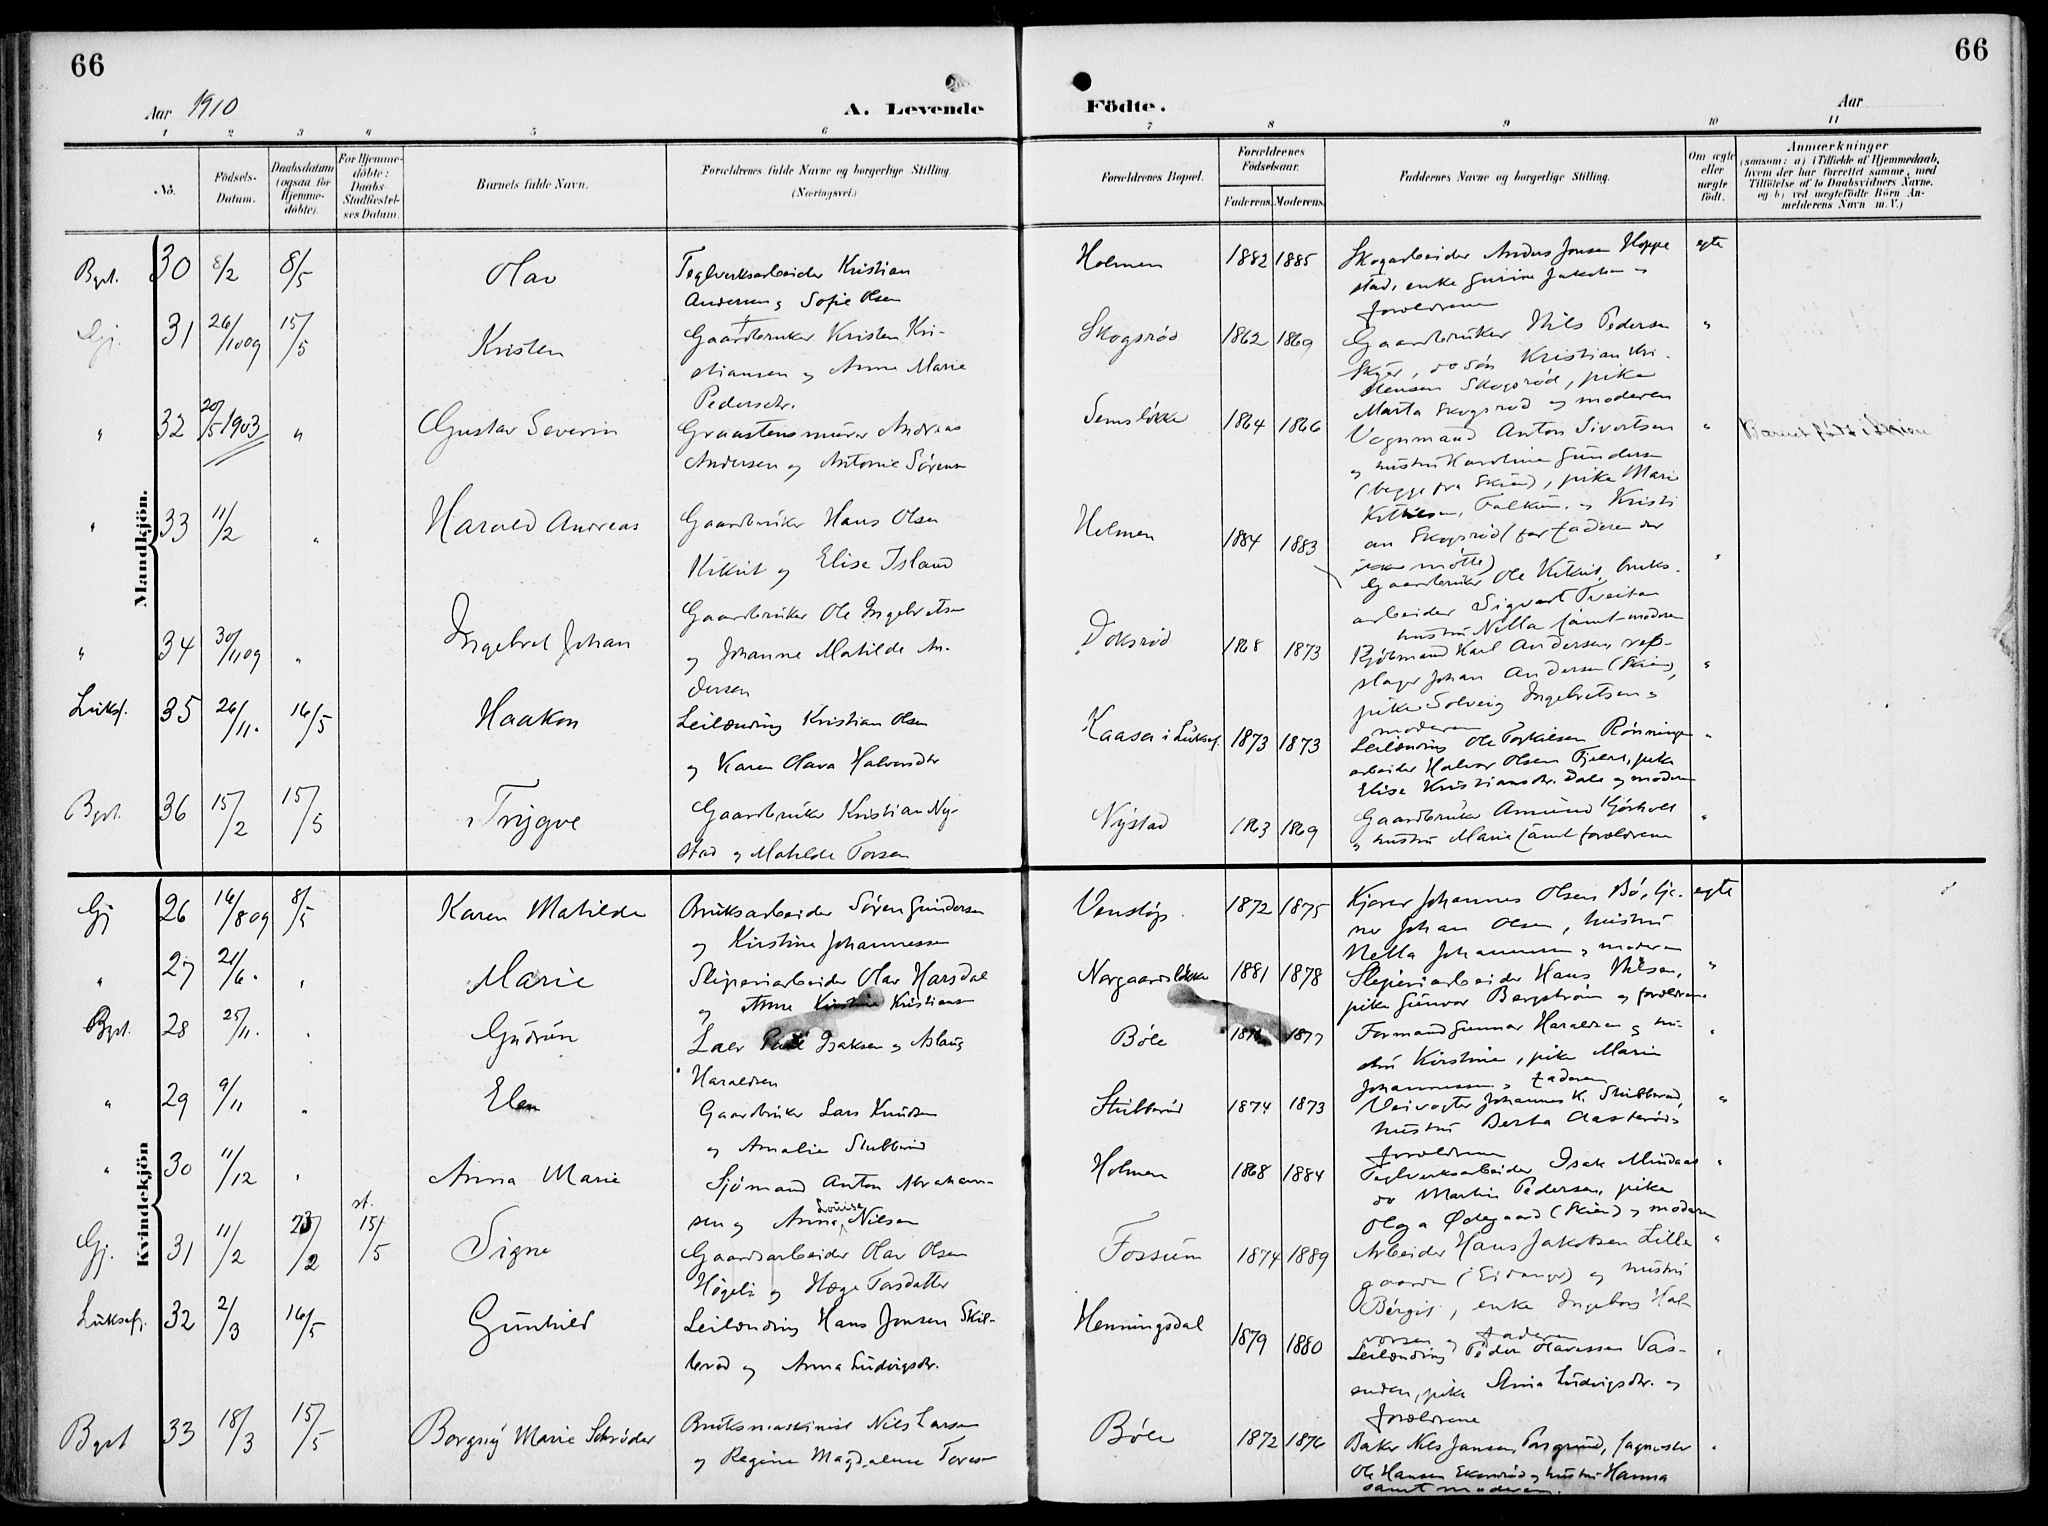 66
66
Aar 1910
A. Levende
Födte.
Aar
1 2 3 4 5 6 7 8 9 10 11
No.
Födsels-Datum.
Daabsdatum (ogsaa for Hjemme-döbte).
For Hjemme-döbte: Daabs-Stadfæstel-ses Datum.
Barnets fulde Navn.
Forældrenes fulde Navne og borgerlige Stilling.
(Næringsvei.)
Forældrenes Bopæl.
Forældrenes Födselsaar.
Faderens. Moderens.
Faddernes Navne og borgerlige Stilling.
Om ægte eller uægte födt.
Anmærkninger
(saasom: a) i Tilfælde af Hjemmedaab, hvem der har forrettet samme, med Tilföielse af to Daabsvidners Navne. og b) ved uægtefödte Börn An-melderens Navn m. V.)
Mandkjön.
Bgst. 30 8/2 8/5 Olav
Teglverksarbeider Kristian
Andersen og Sofie Olsen
Holmen 1882 1885
Skogarbeider Anders Jonsen Hoppe
stad, enke Gurine Jakobsen og
forældrene
egte
Gj. 31 26/10 09 15/5 Kristen
Gaardbruker Kristen Kri-
stiansen og Anne Marie
Pedersdtr.
Skogsrød 1862 1869
Gaardbruker Nils Pedersen
Kristian Kri-
Skogsrød, pike
Marta Skogsrød og moderen
"
" 32 20/5 1903 " Gustav Severin
Graastensmurer Andreas
Andersen og Antonie Sørensen
Semsløkka 1864 1866
Vognmand Anton Sivertsen
og hustru Karoline Gundersen
(begge fra Skien), pike Marie
Kittilsen, Falkum, og Kristi
an Skogsrød (for faderen der
ikke møtte)
"
Barnet født i Skien
" 33 11/2 " Harald Andreas
Gaardbruker Hans Olsen
Kikut og Elise Island
Holmen 1884 1883
Gaardbruker Ole Kikut, bruks-
arbeider Sigvart Tveitan
hustru Nella samt moderen
"
" 34 30/11 09 " Ingebret Johan
Gaardbruker Ole Ingebretsen
og Johanne Matilde An-
dersen
Doksrød 1868 1873
Kjøbmand Karl Andersen, rep-
slager Johan Andersen (Skien),
pike Solveig Ingebretsen og
moderen
"
Luksf. 35 26/11. 16/5 Haakon
Leilænding Kristian Olsen
og Karen Olava Halvorsdtr
Kaasa i Luksf. 1873 1873
Leilænding Ole Torkilsen Rønningen
arbeider Halvor Olsen Fjeld, pike
Elise Kristiansdtr. Dale og moderen
"
Bgst. 36 15/2 15/5 Trygve
Gaardbruker Kristian Ny-
stad og Matilde Torsen
Nystad 1863 1869
Gaardbruker Amund Gjerholt
og hustru Marie samt forældrene
"
Kvindekjön
Gj 26 16/8 09 8/5 Karen Matilde
Bruksarbeider Søren Gundersen
og Kirstine Johannessen
Venstøp. 1872 1875
Kjører Johannes Olsen Bö, tje-
ner Johan Olsen, hustru
Nella Johannessen og moderen
egte
" 27 21/6. " Marie
Sliperiarbeider Olav Harsdal
og Anne Kristiansen
Norgaardsløkka 1881 1878
Sliperiarbeider Hans Nilsen,
pike Gunvor Bergstrøm og forældrene
"
Bgst. 28 25/11. " Gudrun
Laer Paul Isaksen og Aslaug
Haraldsen
Bøle 1877
Formand Gunnar Haraldsen og hu-
stru Kirstine, pike Marie
Johannessen og faderen
"
" 29 9/11 " Elen
Gaardbruker Lars Knudsen
og Amalie Stubberud
Stubberud 1874 1873
Veivogter Johannes K. Stubberud,
hustru Berta Aasterud og
forældrene
"
" 30 11/12 " Anna Marie
Sjömand Anton Abraham-
sen og Anna Louise Nilsen
Holmen 1868 1884
Teglverksarbeider Isak
Martin Pedersen, pike
Olga Ødegaard (Skien) og moderen
"
Gj. 31 11/2 23/2 st. 15/5 Signe
Gaardsarbeider Olav Olsen
Høgeli og Hæge Torsdatter
Fossum 1874 1889
Arbeider Hans Jakobsen Lille
gaarden (Eidanger) og hustru
Bergit, enke Ingeborg Hal-
vorsen og faderen
"
Luksefj. 32 2/3 16/5 Gunhild
Leilænding Hans Jensen Skil-
brod og Anna Ludvigsdtr.
Henningsdal 1879 1880
Leilænding Peder Olavessen Vas-
enden, pike Anna Ludvigsdtr. og
forældrene
"
Bgst 33 18/3 15/5 Borgny Marie Schrøder
Bruksmaskinist Nils Larsen
og Regine Magdalene Toresen
Bøle 1872 1876
Baker Nils Jansen, Porsgrund,
Ole Hansen og hustru Hanna
samt moderen.
"